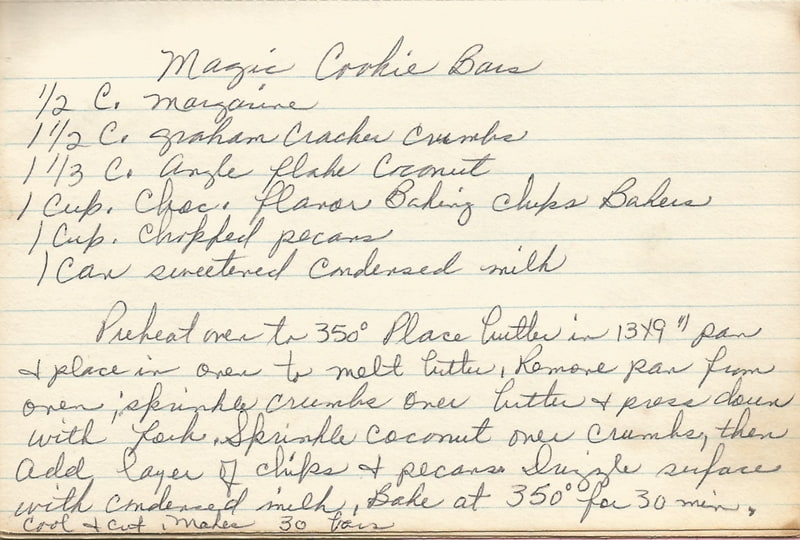 Magic Cookie Bars
1/2 C. margarine
1 1/2 C. graham Cracker crumbs
1 1/3 C. Angle flake Coconut
1 Cup. Choc. flavor Baking chips Bakers
1 Cup. chopped pecans
1 Can sweetened Condensed milk
Preheat oven to 350° Place butter in 13x9" pan
& place in oven to melt butter, Remove pan from
oven; sprinkle crumbs over butter & press down
with fork. Sprinkle coconut over crumbs, then
add layer of chips & pecans. Drizzle surface
with condensed milk, Bake at 350° for 30 min.
Cool & cut. Makes 30 bars